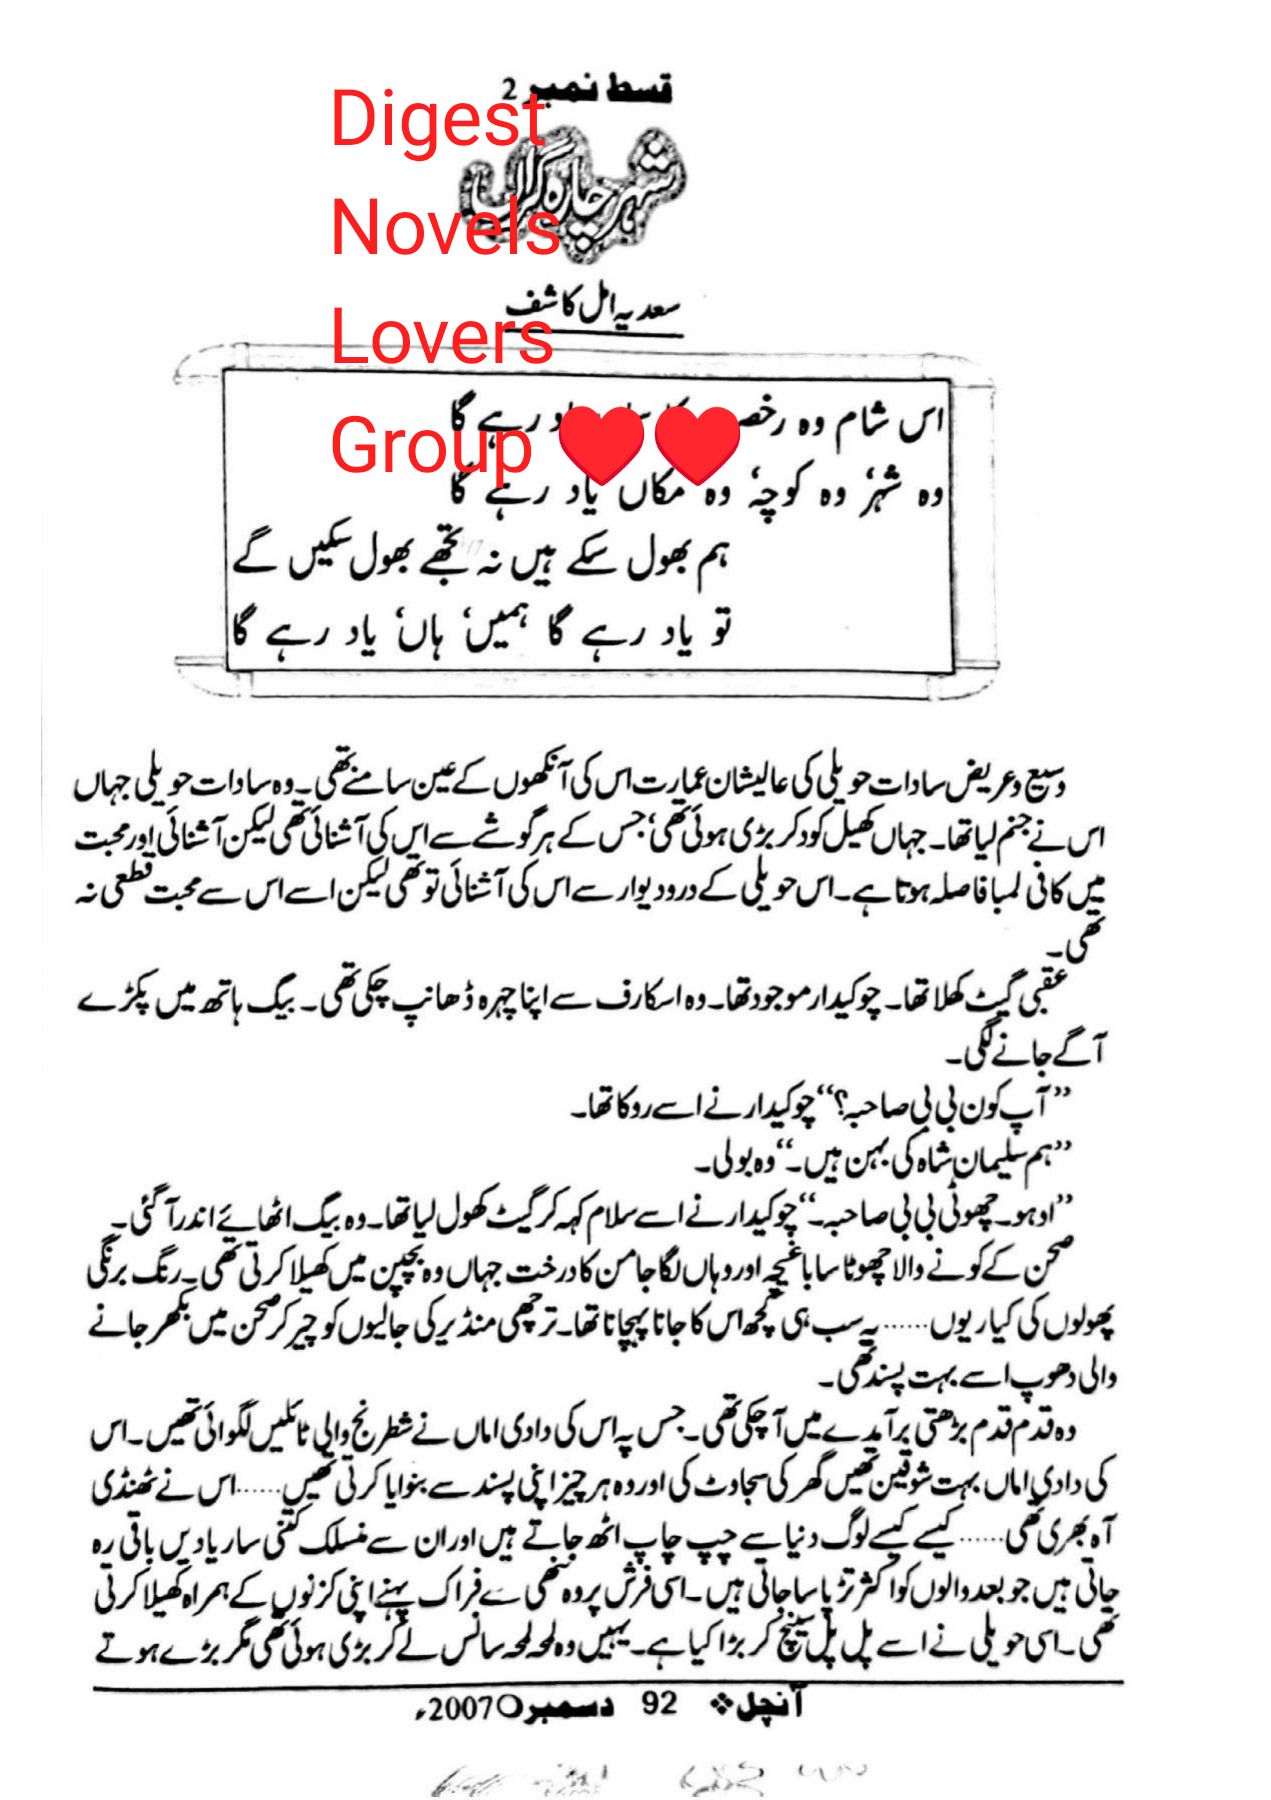 قسط نمبر 2
Digest
Novels
Lovers
Group
شہر چارہ گراں
سعدیہ امل کاشف
اس شام وہ رخصت یاد رہے گا
وہ شہر، وہ کوچہ، وہ مکاں یاد رہے گا
ہم بھول سکے ہیں نہ تجھے بھول سکیں گے
تو یاد رہے گا ہمیں، ہاں، یاد رہے گا
وسیع و عریض سادات حویلی کی عالیشان عمارت اس کی آنکھوں کے عین سامنے تھی۔ وہ سادات حویلی جہاں
اس نے جنم لیا تھا۔ جہاں کھیل کود کر بڑی ہوئی تھی، جس کے ہر گوشے سے اس کی آشنائی تھی لیکن آشنائی اور محبت
میں کافی لمبا فاصلہ ہوتا ہے۔ اس حویلی کے درودیوار سے اس کی آشنائی تو تھی لیکن اسے اس سے محبت قطعی نہ
تھی۔
عقبی گیٹ کھلا تھا۔ چوکیدار موجود تھا۔ وہ اسکارف سے اپنا چہرہ ڈھانپ چکی تھی۔ بیگ ہاتھ میں پکڑے
آگے جانے لگی۔
”آپ کون بی بی صاحبہ؟“ چوکیدار نے اسے روکا تھا۔
”ہم سلیمان شاہ کی بہن ہیں۔“ وہ بولی۔
”اوہو۔ چھوٹی بی بی صاحبہ۔“ چوکیدار نے اسے سلام کہہ کر گیٹ کھول لیا تھا۔ وہ بیگ اٹھائے اندر آ گئی۔
صحن کے کونے والا چھوٹا سا باغیچہ اور وہاں لگا جامن کا درخت جہاں وہ بچپن میں کھیلا کرتی تھی۔ رنگ برنگی
پھولوں کی کیاریوں...... یہ سب ہی کچھ اس کا جانا پہچانا تھا۔ ترچھی منڈیر کی جالیوں کو چیر کر صحن میں بکھر جانے
والی دھوپ اسے بہت پسند تھی۔
وہ قدم قدم بڑھتی برآمدے میں آ چکی تھی۔ جس پہ اس کی دادی اماں نے شطرنج والی ٹائلیں لگوائی تھیں۔ اس
کی دادی اماں بہت شوقین تھیں گھر کی سجاوٹ کی اور وہ ہر چیز اپنی پسند سے بنوایا کرتی تھیں...... اس نے ٹھنڈی
آہ بھری تھی...... کیسے کیسے لوگ دنیا سے چپ چاپ اٹھ جاتے ہیں اور ان سے منسلک کتنی سار یادیں باقی رہ
جاتی ہیں جو بعد والوں کو اکثر تڑپا سا جاتی ہیں۔ اسی فرش پر وہ ننھی سے فراک پہنے اپنی کزنوں کے ہمراہ کھیلا کرتی
تھی۔ اسی حویلی نے اسے پل پل سینچ کر بڑا کیا ہے۔ یہیں وہ لمحہ لمحہ سانس لے کر بڑی ہوئی تھی مگر بڑے ہوتے
آنچل ❖ 92 دسمبر 2007ء